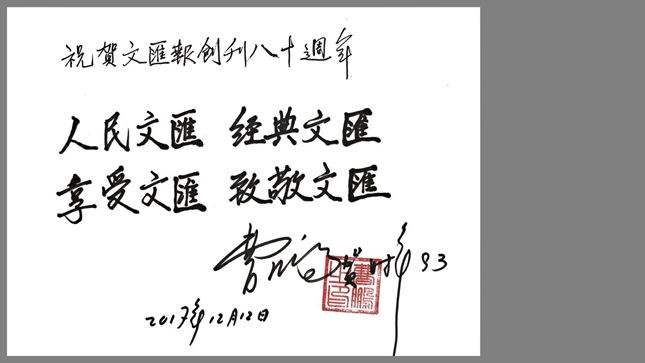 祝賀文匯報創刊八十週年
人民文匯 经典文匯
享受文匯 致敬文匯
曹鹏 贺 时年93
2017年12月12日